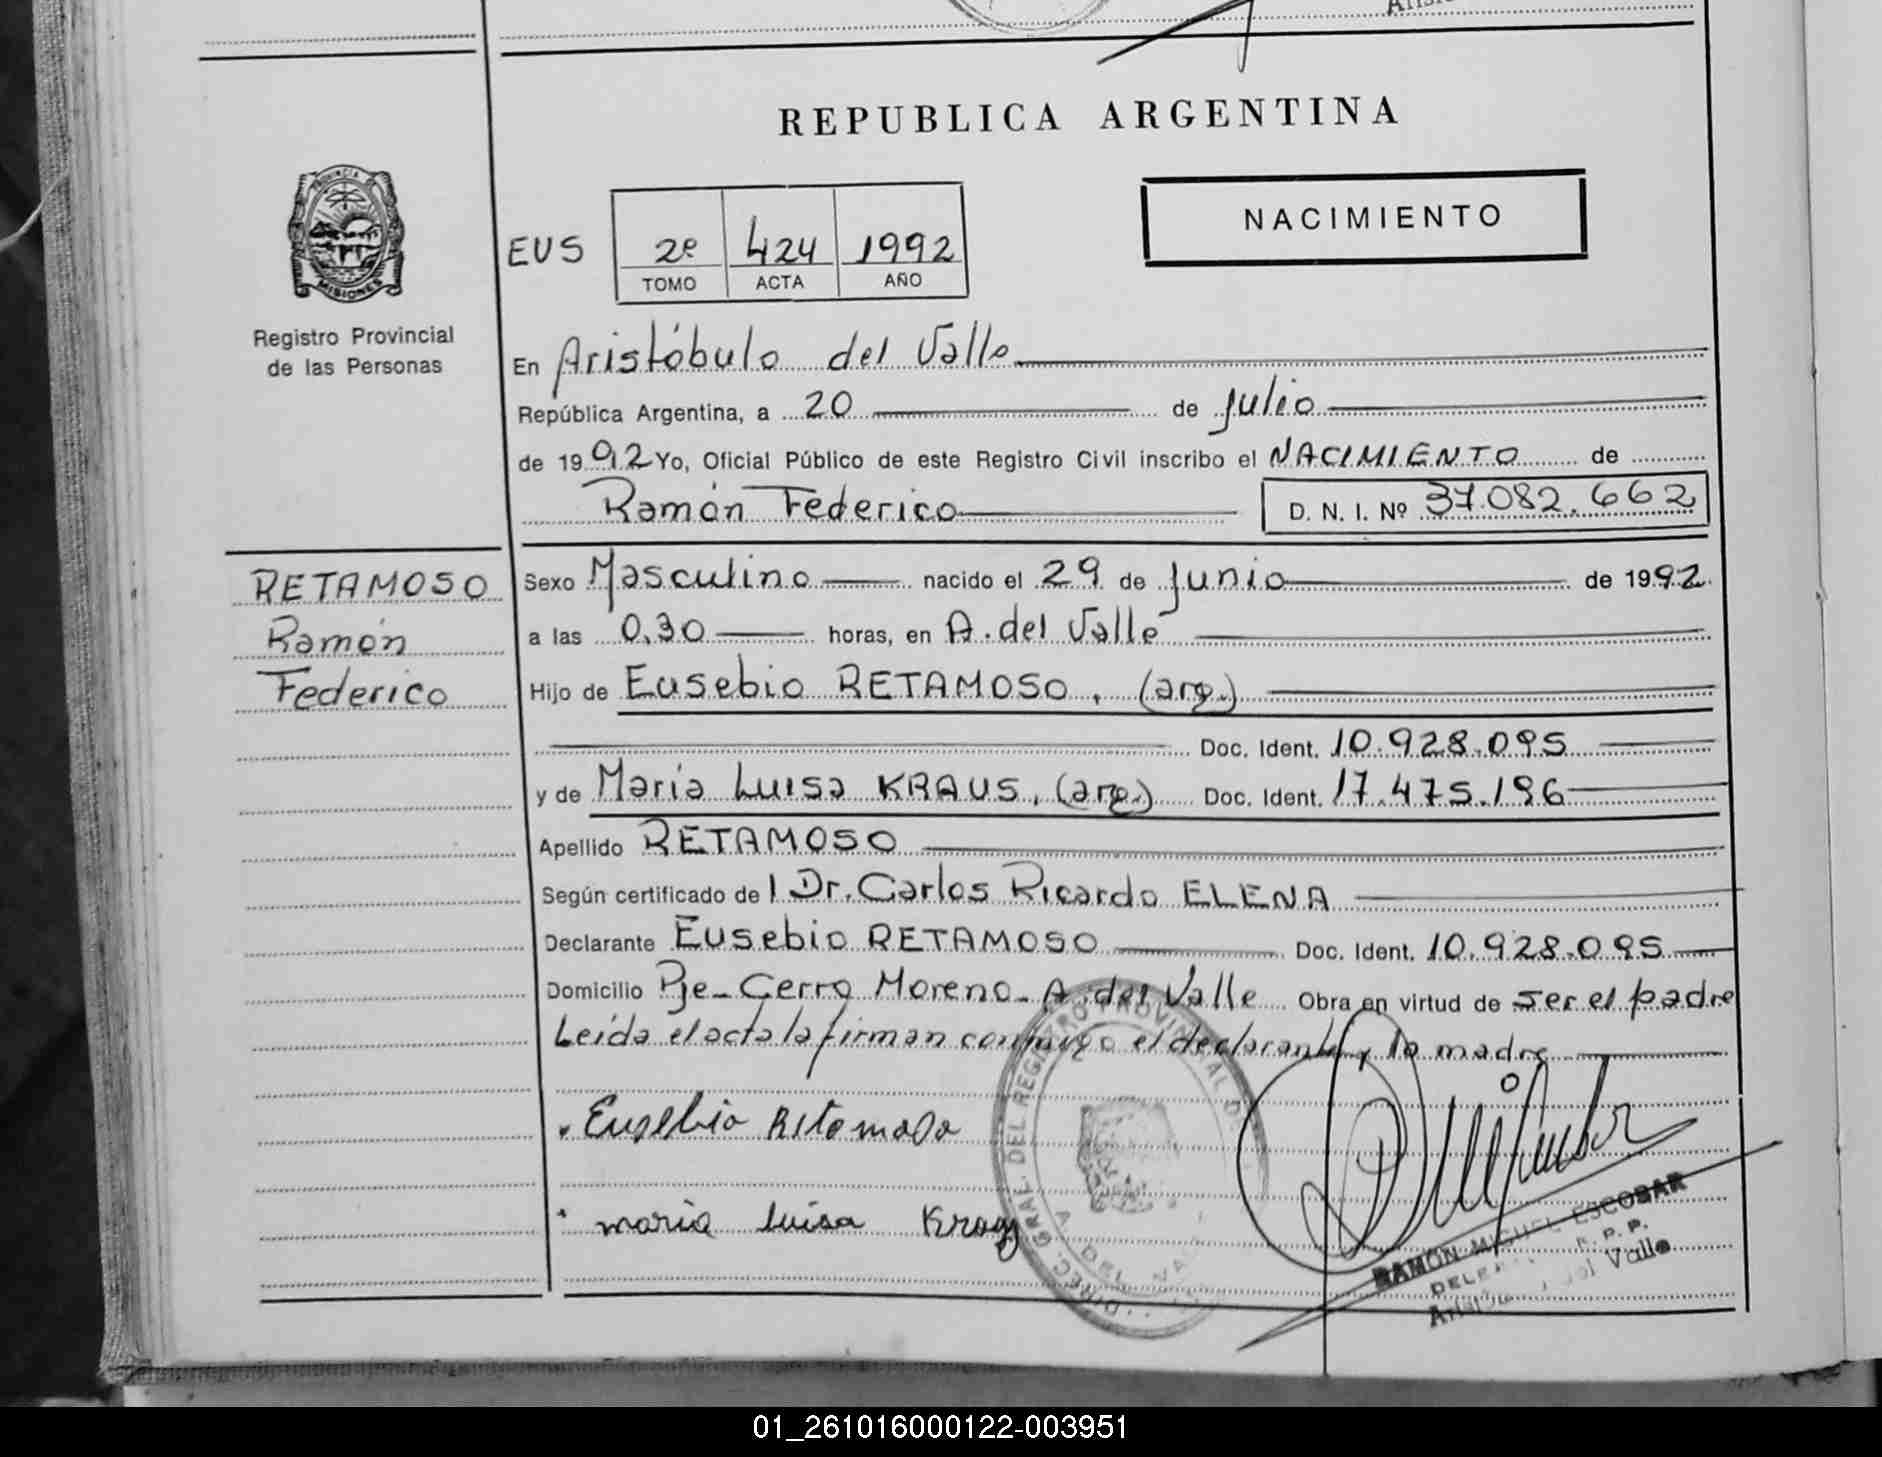 REPUBLICA ARGENTINA
PROVINCIA DE
MISIONES
Registro Provincial
de las Personas
NACIMIENTO
EUS 2º 424 1992
TOMO ACTA AÑO
En Aristóbulo del Valle
República Argentina, a 20 de Julio
de 1992 Yo, Oficial Público de este Registro Civil inscribo el NACIMIENTO de
Ramón Federico D. N. I. Nº 37.082.662
RETAMOSO
Ramón
Federico
Sexo Masculino nacido el 29 de Junio de 1992
a las 0,30 horas, en A. del Valle
Hijo de Eusebio RETAMOSO, (arg.)
Doc. Ident. 10.928.095
y de María Luisa KRAUS, (arg.) Doc. Ident. 17.475.196
Apellido RETAMOSO
Según certificado de l Dr. Carlos Ricardo ELENA
Declarante Eusebio RETAMOSO Doc. Ident. 10.928.095
Domicilio Pje- Cerro Moreno- A. del Valle Obra en virtud de ser el padre
Leída el acta la firman conmigo el declarante y la madre
Eusebio Retamoso
maria luisa
DIREC. GRAL. DEL REGISTRO PROVINCIAL DE
A. DEL VA
RAMON MIGUEL ESCOBAR
R. P. P.
del Valle
01_261016000122-003951